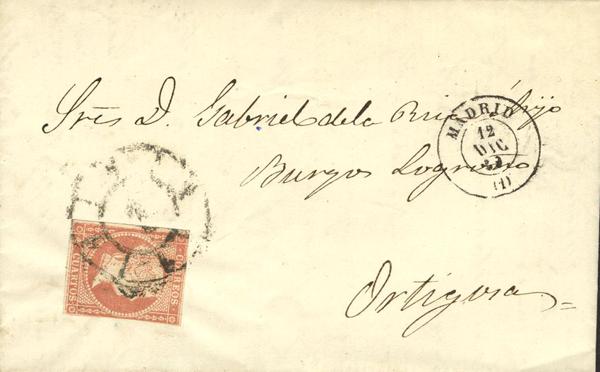 Sres D. Gabriel de la Riva é hijo
Burgos Logroño
Ortigosa =
MADRID
12
DIC
(1)
CORREOS
CUARTOS